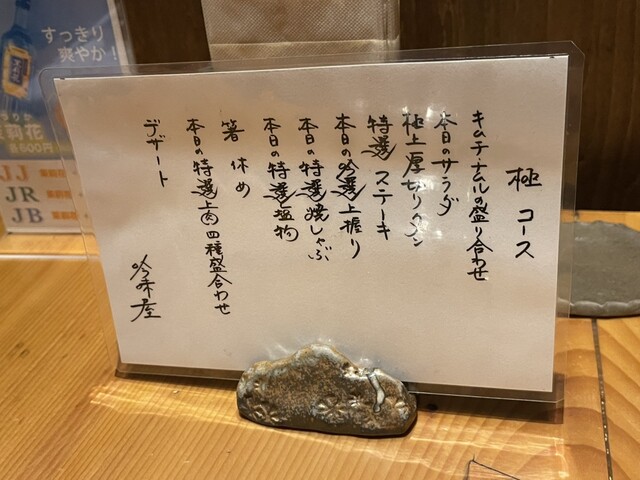 極 コース
キムチ・ナムルの盛り合わせ
本日のサラダ
極上厚切りタン
特選 ステーキ
本日の吟選上握り
本日の特選焼しゃぶ
本日の特選塩物
箸休め
本日の特選上肉四種盛合わせ
デザート
吟味屋
すっきり
爽やか!
JJ
JR
JB